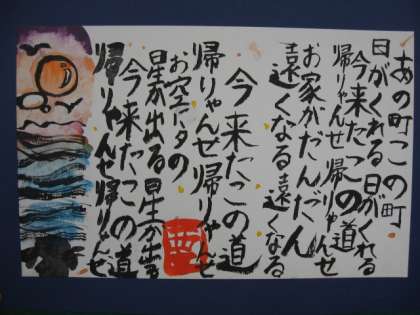 あの町この町
日がくれる日がくれる
今来たこの道
帰りゃんせ帰りゃんせ
お家がだんだん
遠くなる遠くなる
今来たこの道
帰りゃんせ帰りゃんせ
お空に夕の
星が出る星が出る
今来たこの道
帰りゃんせ帰りゃんせ